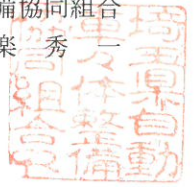 備協同組合
楽 秀 一
埼玉県自動
車体整備
協同組合